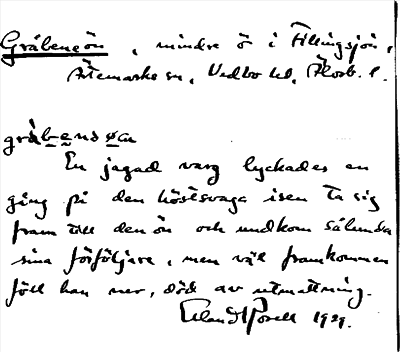 Gråbeneön, mindre ö i Fillingsjön,
Ärtemarks sn, Vedbo hd, Älvsb. l.
grå̀bẹnsøn
En jagad varg lyckades en
gång på den höstsvaga isen ta sig
fram till den ön och undkom sålunda
sina förföljare, men väl framkommen
föll han ner, död av utmattning.
Erland Rosell 1929.